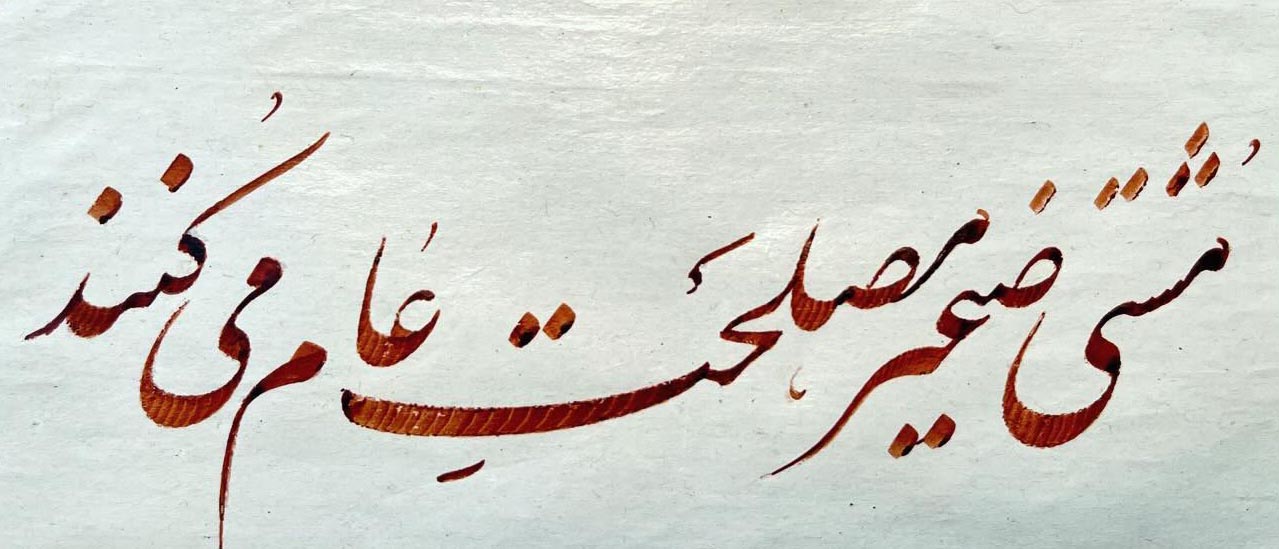 مُشتی ضمیر مصلحَتِ عام می کُنند